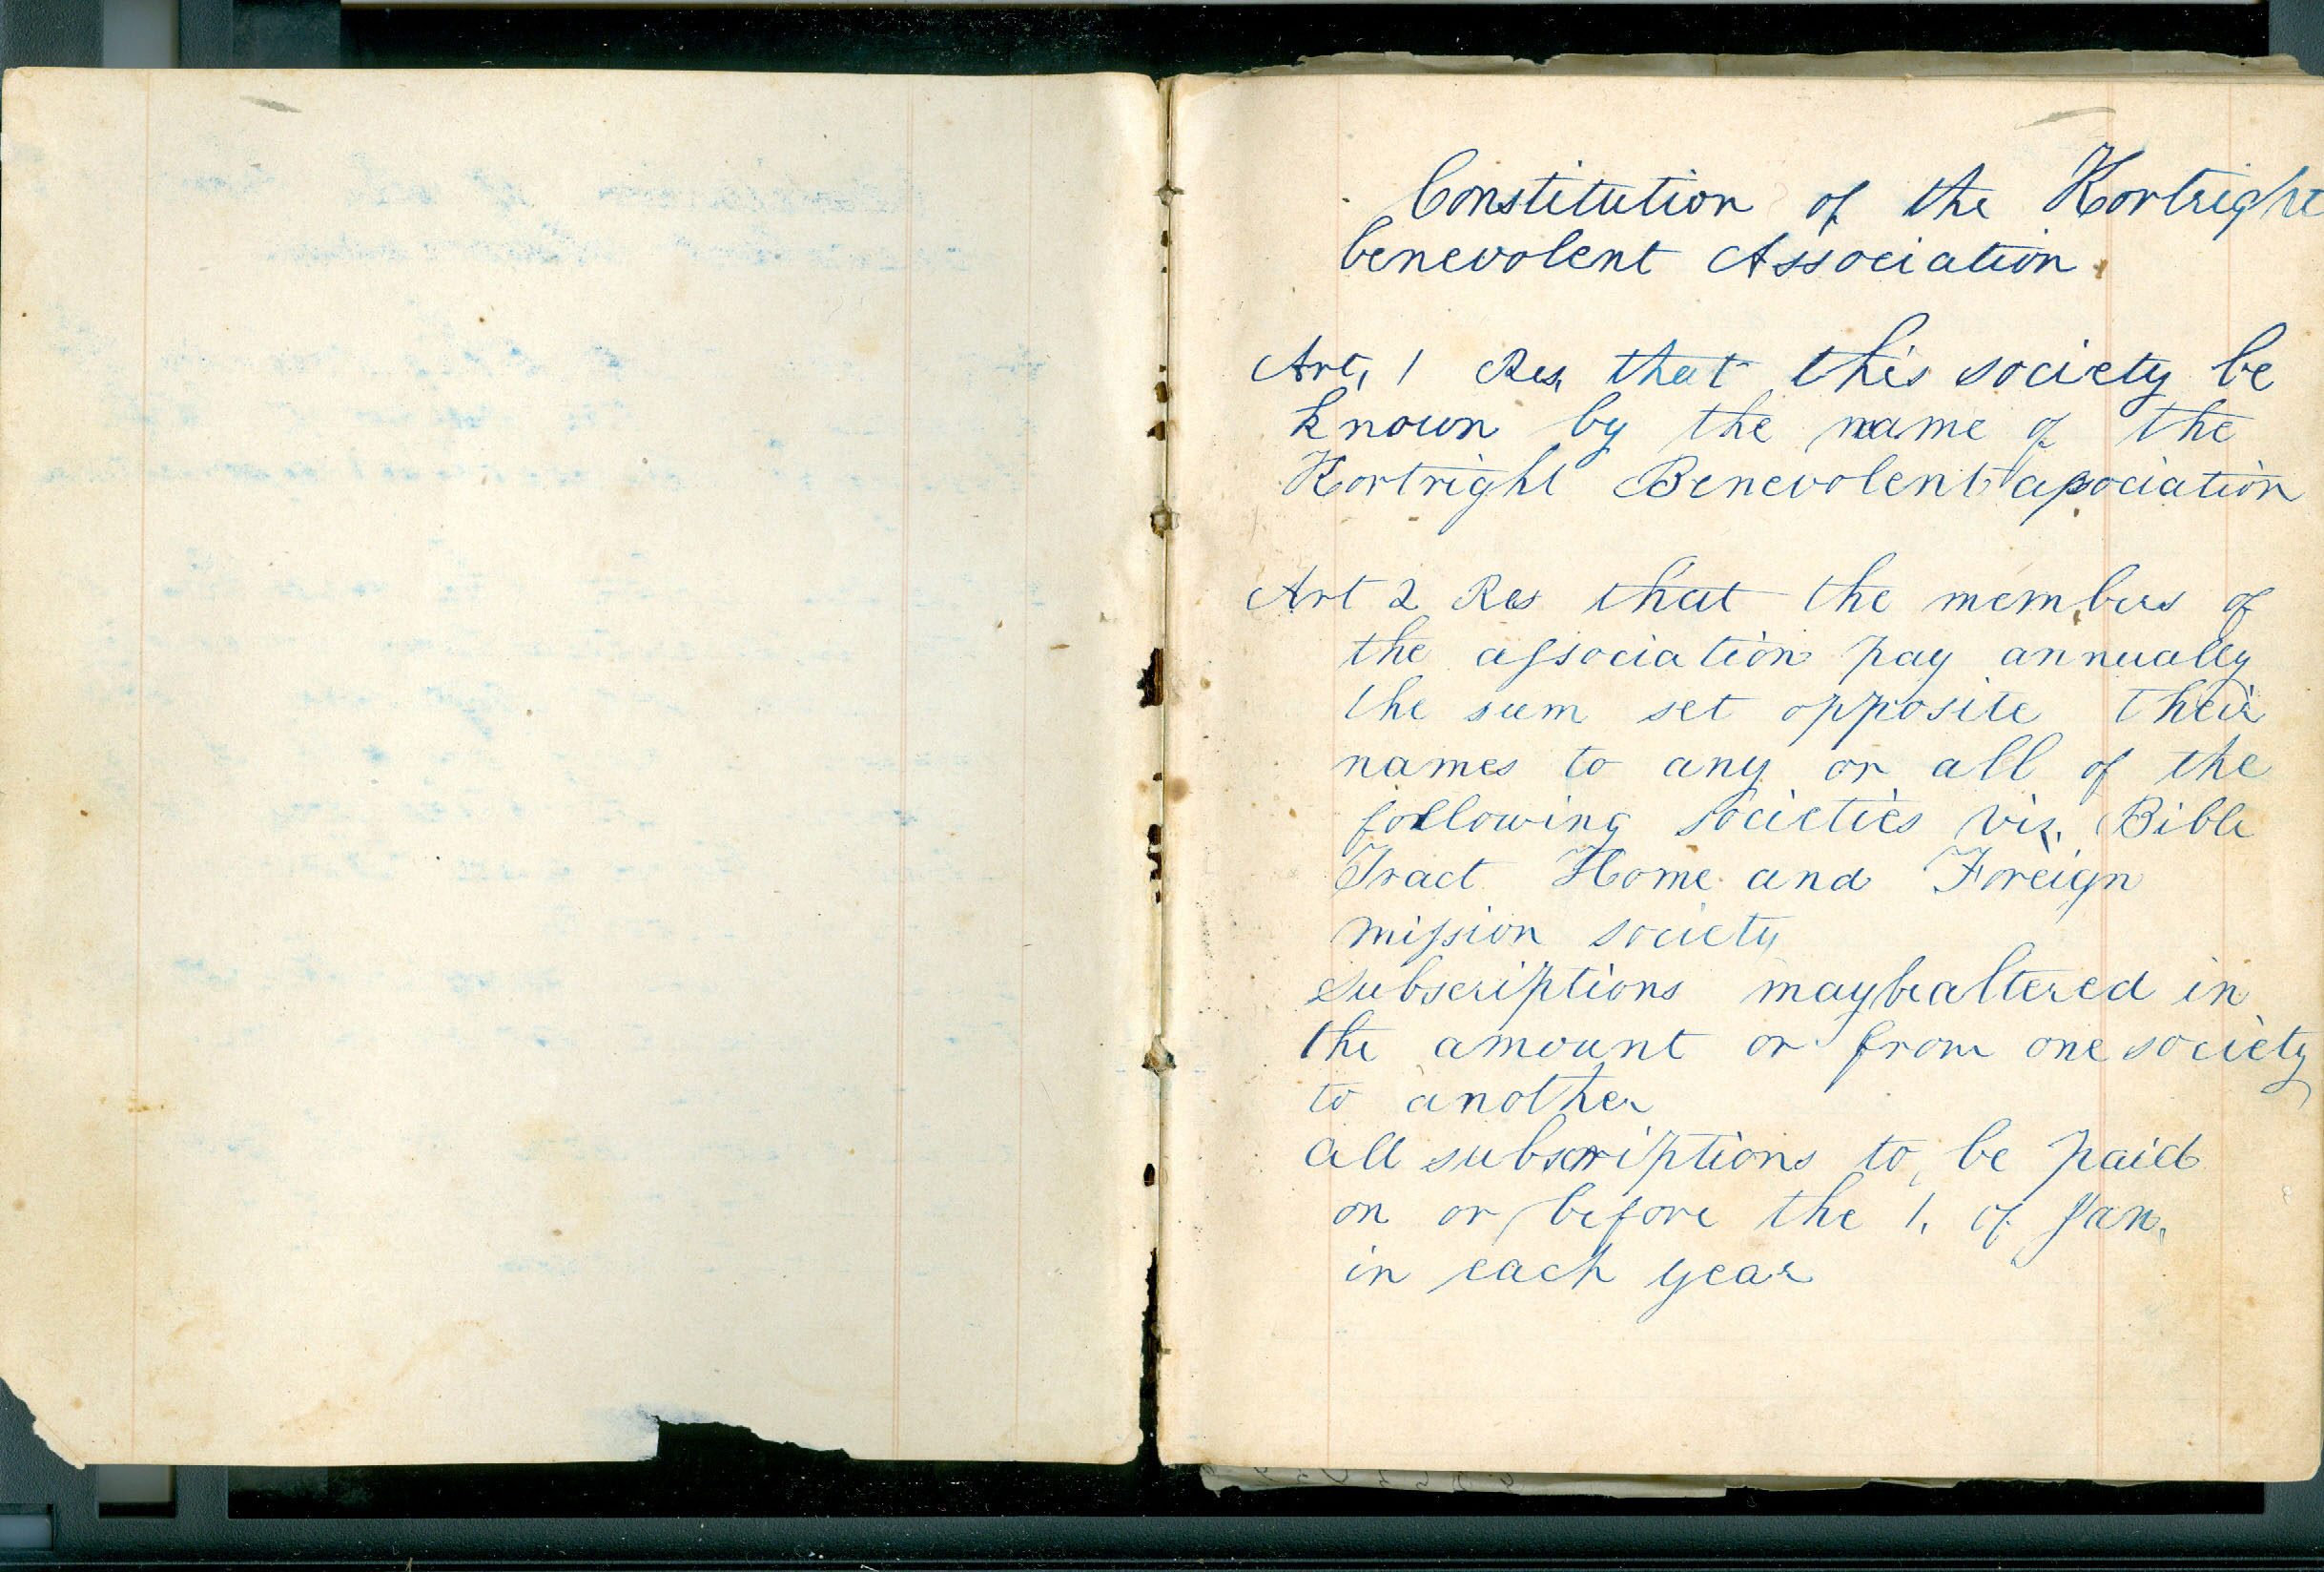 Constitution of the Kortright
benevolent Association.
Art, 1 Res, that this society be
known by the name of the
Kortright Benevolent association
Art 2 Res that the members of
the association pay annually
the sum set opposite their
names to any or all of the
following societies viz. Bible
Tract Home and Foreign
mission society
subscriptions may be altered in
the amount or from one society
to another
all subscriptions to be paid
on or before the 1. of Jan.
in each year